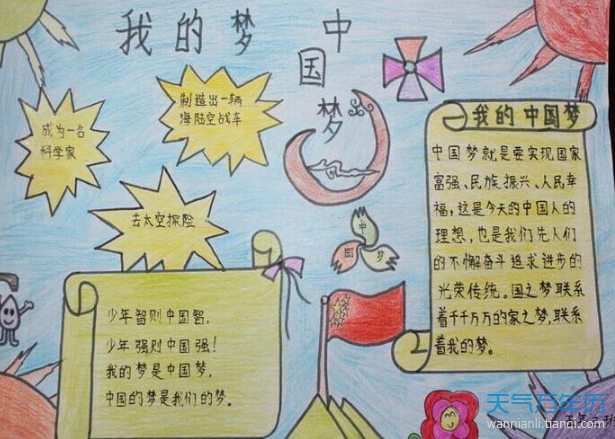 我的梦 中国梦
成为一名
科学家
制造出一辆
海陆空战车
去太空探险
中
国
梦
少年智则中国智,
少年强则中国强!
我的梦是中国梦,
中国的梦是我们的梦。
我的中国梦
中国梦就是要实现国家
富强、民族振兴、人民幸
福,这是今天的中国人的
理想,也是我们先人们
的不懈奋斗追求进步的
光荣传统。国之梦联系
着千千万万的家之梦,联系
着我的梦。
天气万年历
wannianli.tianqi.com